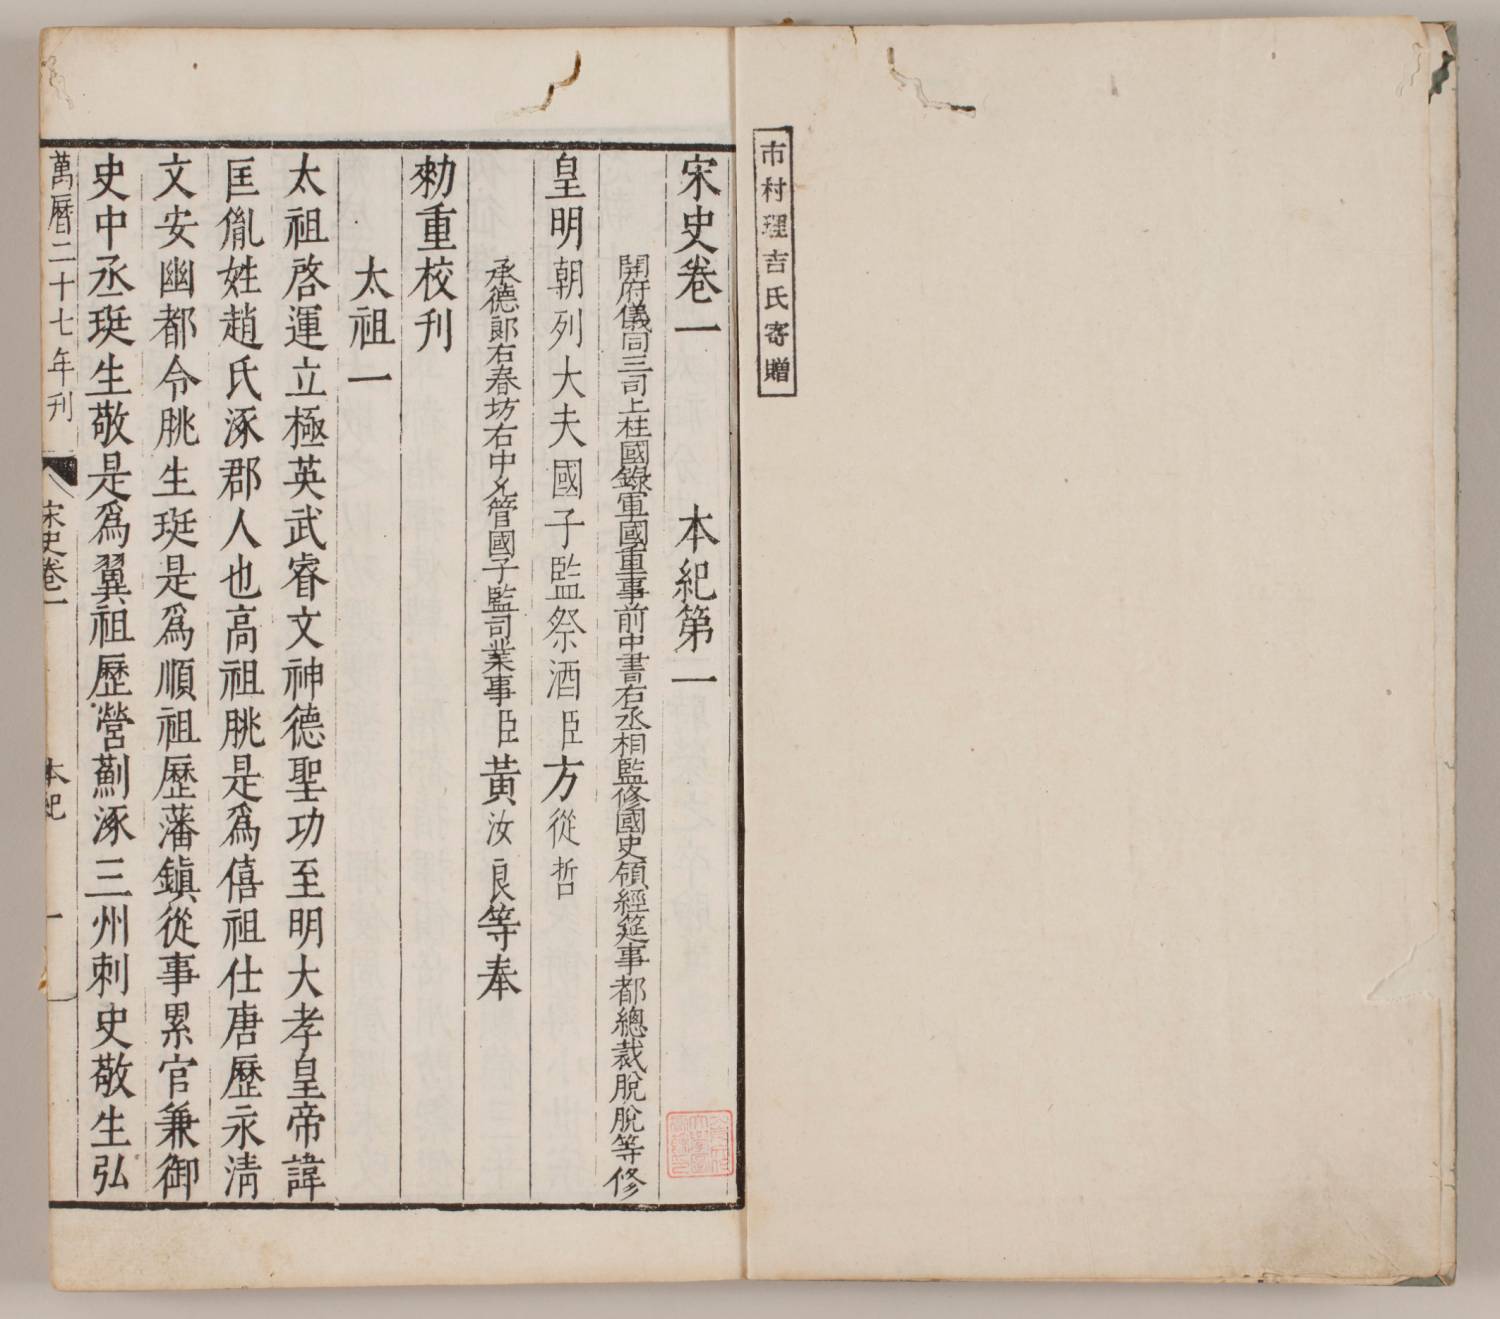 市村理吉氏寄贈
宋史卷一 本紀第一
開府儀同三司上柱國錄軍國重事前中書右丞相監修國史領經筵事都總裁脫脫等修
皇明朝列大夫國子監祭酒臣方從哲
承德郞右春坊右中允管國子監司業事臣黃汝良等奉
勑重校刋
太祖一
太祖啓運立極英武睿文神德聖功至明大孝皇帝諱
匡胤姓趙氏涿郡人也高祖朓是爲僖祖仕唐歷永淸
文安幽都令朓生珽是爲順祖歷藩鎭從事累官兼御
史中丞珽生敬是爲翼祖歷營薊涿三州刺史敬生弘
萬曆二十七年刊
宋史卷一
本紀
一